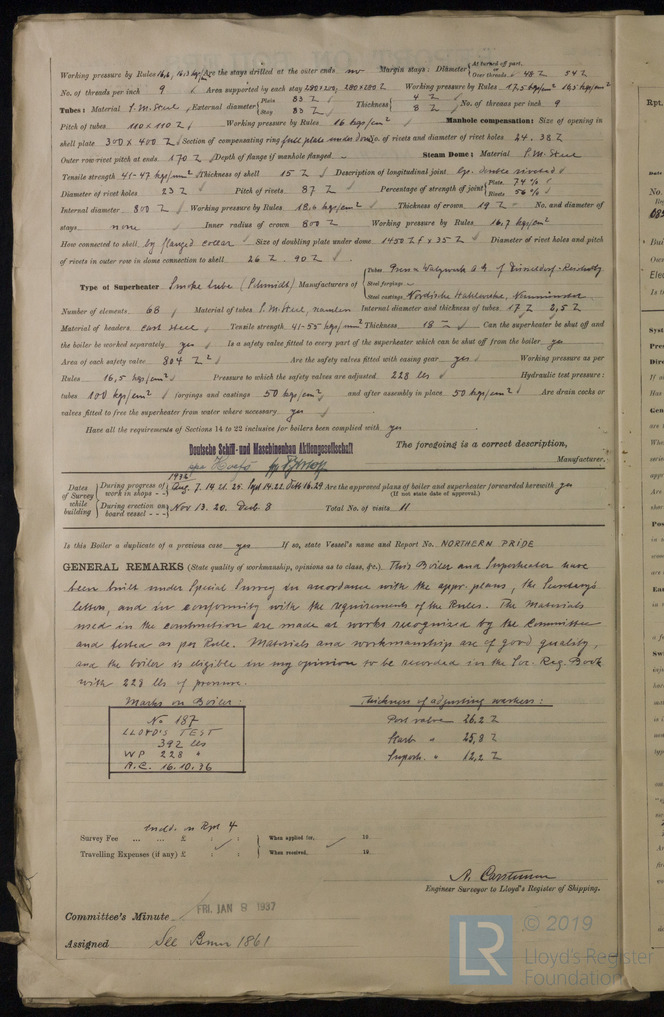 Working pressure by Rules 16,6, 16,3 kg/cm Are the stays drilled at the outer ends no Margin stays: Diameter { At turned off part, Over threads 48 Z 54 Z
No. of threads per inch 9 Area supported by each stay 280 x 202, 280 x 282 Z Working pressure by Rules 17,5 kgs/cm² 18,5 kgs/cm²
Tubes: Material S.M. Steel External diameter { Plain 83 Z Stay 83 Z Thickness { 4 Z 8 Z No. of threads per inch 9
Pitch of tubes 110 x 110 Z Working pressure by Rules 16 kgs/cm² Manhole compensation: Size of opening in
shell plate 300 x 400 Z Section of compensating ring full plate under dome No. of rivets and diameter of rivet holes 24. 38 Z
Outer row rivet pitch at ends 170 Z Depth of flange if manhole flanged - Steam Dome: Material S.M. Steel
Tensile strength 41-47 kgs/mm² Thickness of shell 15 Z Description of longitudinal joint lap. double riveted
Diameter of rivet holes 23 Z Pitch of rivets 87 Z Percentage of strength of joint { Plate 74 % Rivets 56 %
Internal diameter 800 Z Working pressure by Rules 18,6 kgs/cm² Thickness of crown 19 Z No. and diameter of
stays none Inner radius of crown 800 Z Working pressure by Rules 16,7 kgs/cm²
How connected to shell by flanged collar Size of doubling plate under dome 1450 Z x 35 Z Diameter of rivet holes and pitch
of rivets in outer row in dome connection to shell 26 Z. 90 Z
Type of Superheater Smoke tube (Schmidt) Manufacturers of { Tubes Press u Walzwerk A.G. of Düsseldorf-Reisholz
Steel forgings -
Steel castings Nordische Stahlwerke, Neumünster
Number of elements 68 Material of tubes S.M. Steel, seamless Internal diameter and thickness of tubes 17 Z 2,5 Z
Material of headers cast steel Tensile strength 41-55 kgs/mm² Thickness 18 Z Can the superheater be shut off and
the boiler be worked separately yes Is a safety valve fitted to every part of the superheater which can be shut off from the boiler yes
Area of each safety valve 804 Z² Are the safety valves fitted with easing gear yes Working pressure as per
Rules 16,5 kgs/cm² Pressure to which the safety valves are adjusted 228 lbs Hydraulic test pressure:
tubes 100 kgs/cm² forgings and castings 50 kgs/cm² and after assembly in place 50 kgs/cm² Are drain cocks or
valves fitted to free the superheater from water where necessary yes
Have all the requirements of Sections 14 to 22 inclusive for boilers been complied with yes
Deutsche Schiff- und Maschinenbau Aktiengesellschaft The foregoing is a correct description,
Manufacturer.
1936
Dates of Survey while building { During progress of work in shops - - Aug. 7. 14. 21. 25. Sept 14. 22. Oct. 16. 29 Are the approved plans of boiler and superheater forwarded herewith yes
(If not state date of approval.)
During erection on board vessel - - - Nov 13. 20. Dec. 8 Total No. of visits 11
Is this Boiler a duplicate of a previous case yes If so, state Vessel's name and Report No. NORTHERN PRIDE
GENERAL REMARKS (State quality of workmanship, opinions as to class, &c.) This Boiler and Superheater have
been built under Special Survey in accordance with the appr. plans, the Secretary's
letters, and in conformity with the requirements of the Rules. The Materials
used in the construction are made at works recognized by the Committee
and tested as per Rule. Materials and workmanship are of good quality,
and the boiler is eligible in my opinion to be recorded in the Soc. Reg. Book
with 228 lbs of pressure.
Marks on Boiler: Thickness of adjusting washers:
No 187
LLOYD'S TEST
392 lbs
WP 228 "
A.C. 16.10.36
Port valve 26,2 Z
Starb. " 25,8 Z
Superh. " 12,2 Z
Incld. on Rpt 4
Survey Fee ... ... £ : : When applied for, 19
Travelling Expenses (if any) £ : : When received, 19
Engineer Surveyor to Lloyd's Register of Shipping.
Committee's Minute FRI. JAN 8 1937
Assigned See Bmn 1861
© 2019
LR Lloyd's Register
Foundation
Rpt.